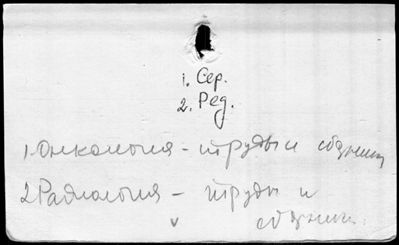 1. Сер.
2. Ред.
1. Онкология - труды и сборники
2 Радиология - труды и
сборники.